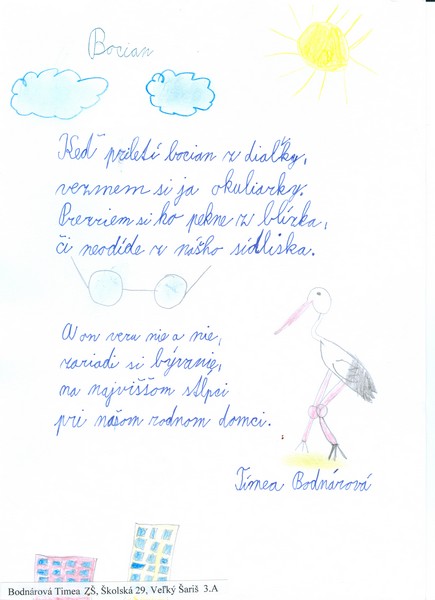 Bocian
Keď priletí bocian z diaľky,
vezmem si ja okuliarky.
Prezriem si ho pekne z blízka,
či neodíde z nášho sídliska.
A on veru nie a nie,
zariadi si bývanie,
na najviššom stĺpci
pri našom rodnom domci.
Tímea Bodnárová
Bodnárová Timea ZŠ, Školská 29, Veľký Šariš 3.A